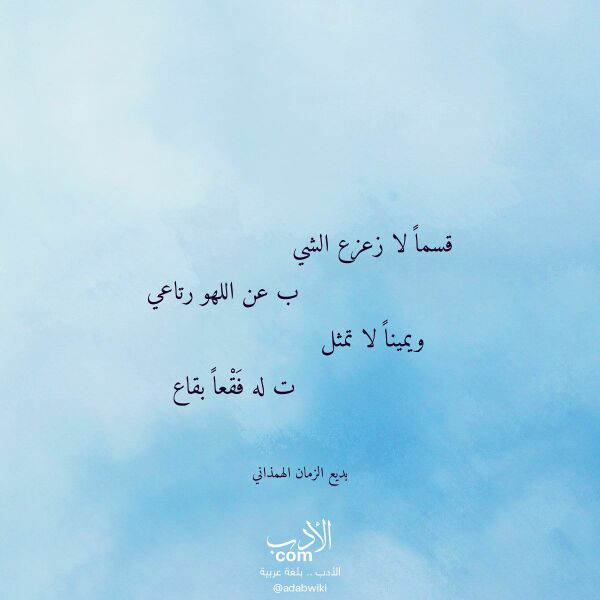 قسماً لا زعزع الشي
ب عن اللهو رتاعي
ويميناً لا تمثل
ت له فَقْعاً بقاع
بديع الزمان الهمذاني
الأدب
com
الأدب .. بلغة عربية
@adabwiki